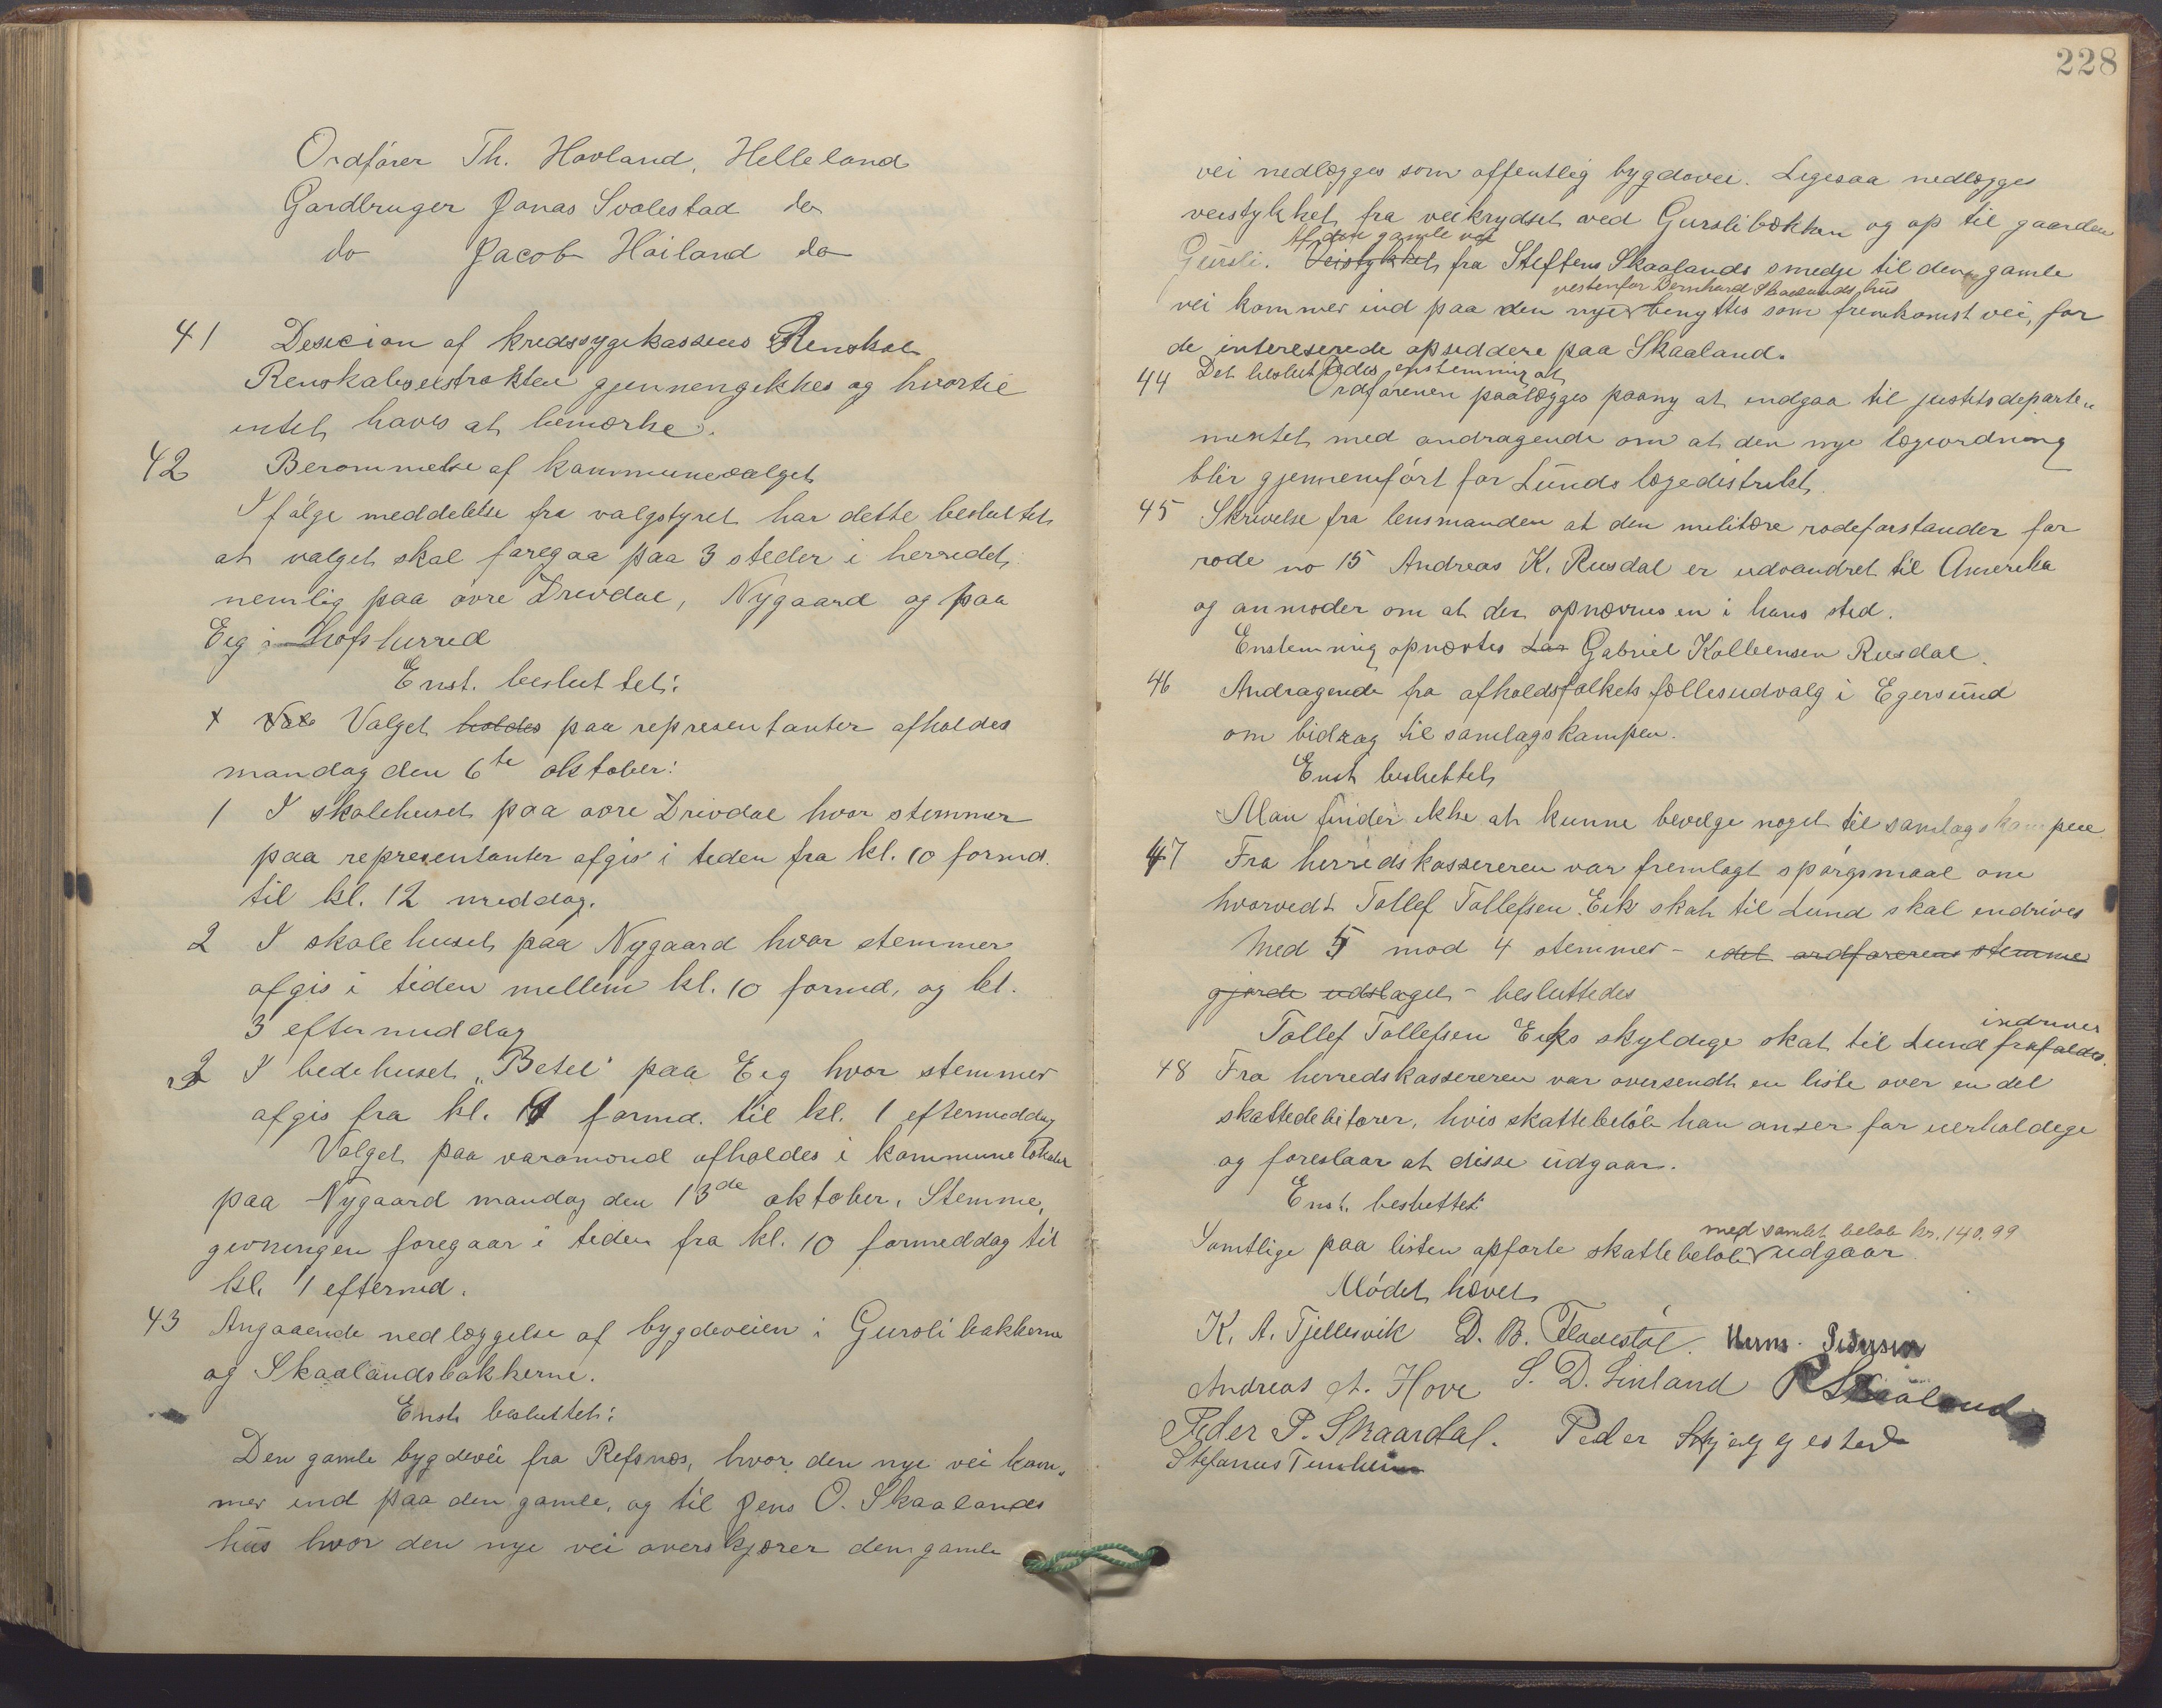 Ordfører Th. Hovland, Helleland
Gardbruger Jonas Svalestad do
do Jacob Høiland do
41 Desicion af kredssygekassens Renskab
Renskabsextrakten gjennengikkes og hvortil
intet haves at bemærke.
42 Berammelse af kommunevalget
I følge meddelelse fra valgstyret har dette besluttet
at valget skal foregaa paa 3 steder i herredet
nemlig paa øvre Drivdal, Nygaard og paa
Eeg i Hofsherred
Enst. besluttet:
Valget holdes paa representanter afholdes
mandag den 6te oktober:
1 I skolehuset paa øvre Drivdal hvor stemmer
paa representanter afgis i tiden fra kl. 10 formd.
til kl. 12 middag.
2 I skolehuset paa Nygaard hvor stemmer
afgis i tiden mellem kl. 10 formd, og kl.
3 eftermiddag
3 I bedehuset "Betel" paa Eeg hvor stemmer
afgis fra kl. 11 formd. til kl. 1 eftermiddag
Valget paa varamænd afholdes i kommunelokalet
paa Nygaard mandag den 13de oktober. Stemme,
givningen foregaar i tiden fra kl. 10 formeddag til
kl. 1 eftermd.
43 Angaaende nedlæggelse af bygdeveien i Gurslibakkerne
og Skaalandsbakkerne.
Enst. besluttet:
Den gamle bygdevei fra Refsnes, hvor den nye vei kom„
mer ind paa den gamle, og til Jens O. Skaalands
hus hvor den nye vei overskjærer den gamle
228
vei nedlægges som offentlig bygdevei. Legesaa nedlægges
veistykket fra veikrydset ved Gurslibækken og op til gaarden
Af den gamle vei
Gursli. Veistykket fra Steffens Skaalands smedje til den gamle
vestenfor Bernhard Skaalands hus
vei kommer ind paa den nye benyttes som fremkomst vei, for
de intereserede opsiddere paa Skaaland.
Det besluttedes enstemmig at
44 Ordføreren paalægges paany at indgaa til justitsdeparte„
mentet med andragende om at den nye lægeordning
blir gjennemført for Lunds lægedistrikt.
45 Skrivelse fra lensmanden at den militære rodeforstander for
rode no 15 Andreas K. Rusdal er udvandret til Amerika
og anmoder om at der opnævnes en i hans sted.
Enstemmig opnævtes Lar Gabriel Kolbensen Rusdal.
46 Andragende fra afholdsfolkets fællesudvalg i Egersund
om bidrag til samlagskampen.
Enst besluttet
Man finder ikke at kunne bevelge noget til samlagskampen
47 Fra herredskassereren var fremlagt spørgsmaal om
hvorvedt Tollef Tollefsen Eik skat til Lund skal indrives
Med 5 mod 4 stemmer - idet ordførerens stemme
gjorde udslaget - besluttedes
indrives
Tollef Tollefsen Eiks skyldige skat til Lund frafaldes.
48 Fra herredskassereren var oversendt en liste over en del
skattedebitorer, hvis skattebeløb han anser for uerholdege
og foreslaar at disse udgaar.
Enst. besluttet
med samlet beløb kr. 140,99
Samtlige paa listen opførte skattebeløb udgaar
Mødet hævet
K. A. Tjellesvik D. B. Fladestøl. Herm. Pedersen
Andreas A. Hove S. D. Linland P Skaaland
Peder P. Skaardal. Peder Skjeggestad
Stefanus